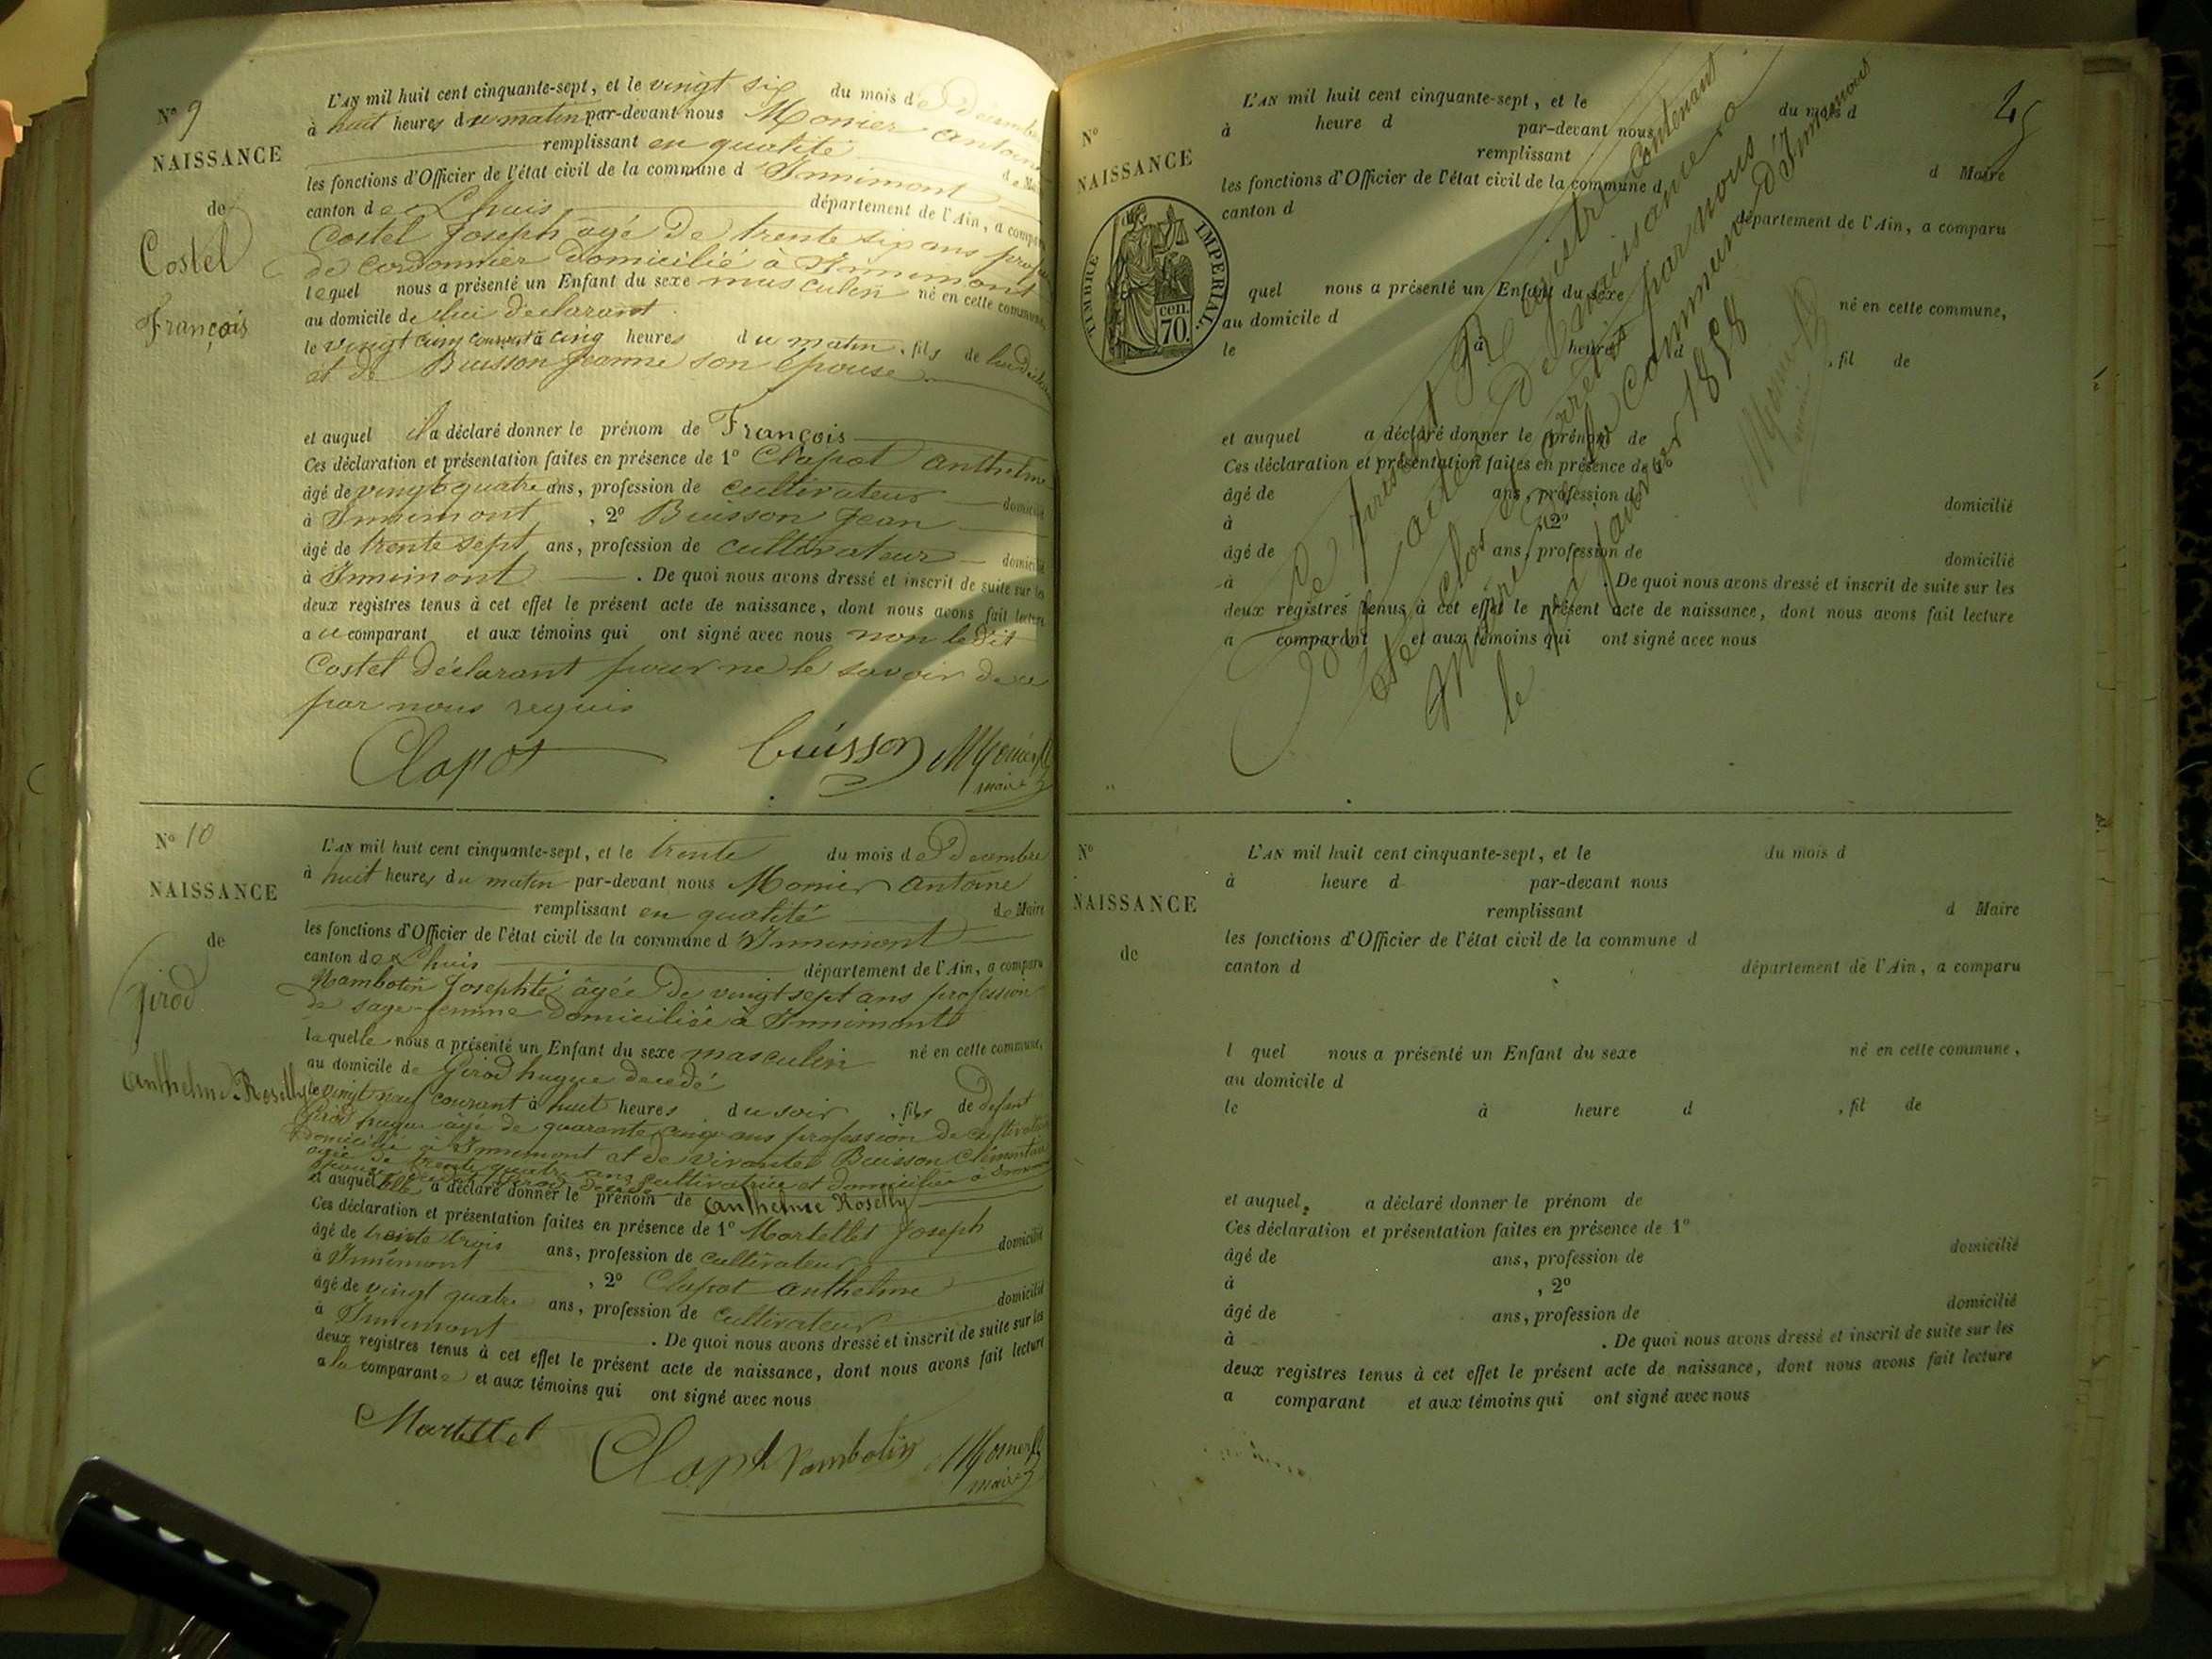 N° 9
NAISSANCE
de
Costel
François
L'AN mil huit cent cinquante-sept, et le vingt six du mois de Decembre
à huit heures du matin par-devant nous Monier Antoine
remplissant en qualité de Maire
les fonctions d'Officier de l'état civil de la commune d'Innimont
canton de Lhuis département de l'Ain, a comparu
Costel Joseph âgé de trente six ans profession
de cordonnier domicilié à Innimont
lequel nous a présenté un Enfant du sexe masculin né en cette commune,
au domicile de lui déclarant
le vingt cinq courant à cinq heures du matin, fils de lui déclarant
et de Buisson Jeanne son épouse
et auquel il a déclaré donner le prénom de François
Ces déclaration et présentation faites en présence de 1° Clapot Anthelme
âgé de vingt quatre ans, profession de cultivateur domicilié
à Innimont, 2° Buisson Jean
âgé de trente sept ans, profession de cultivateur domicilié
à Innimont. De quoi nous avons dressé et inscrit de suite sur les
deux registres tenus à cet effet le présent acte de naissance, dont nous avons fait lecture
au comparant et aux témoins qui ont signé avec nous non le dit
Costel déclarant pour ne le savoir de ce
par nous requis
Clapot Buisson Monier
maire
N° 10
NAISSANCE
de
Girod
Anthelme Roselly
L'AN mil huit cent cinquante-sept, et le trente du mois de Decembre
à huit heures du matin par-devant nous Monier Antoine
remplissant en qualité de Maire
les fonctions d'Officier de l'état civil de la commune d'Innimont
canton de Lhuis département de l'Ain, a comparu
Vambotin Josephte âgée de vingt sept ans profession
de sage-femme domiciliée à Innimont
laquelle nous a présenté un Enfant du sexe masculin né en cette commune,
au domicile de Girod hugue decedé
le vingt neuf courant à huit heures du soir, fils de defunt
Girod hugue âgé de quarante cinq ans profession de cultivateur
domicilié à Innimont et de vivante Buisson Clémentine
âgée de trente quatre ans cultivatrice et domiciliée à Innimont
épouse
et auquel elle a déclaré donner le prénom de Anthelme Roselly
Ces déclaration et présentation faites en présence de 1° Martellet Joseph
âgé de trente trois ans, profession de cultivateur domicilié
à Innimont, 2° Clapot Anthelme
âgé de vingt quatre ans, profession de cultivateur domicilié
à Innimont. De quoi nous avons dressé et inscrit de suite sur les
deux registres tenus à cet effet le présent acte de naissance, dont nous avons fait lecture
a la comparante et aux témoins qui ont signé avec nous
Martellet Clapot Vambotin Monier
maire
45
N°
NAISSANCE
TIMBRE IMPERIAL.
cen. 70.
L'AN mil huit cent cinquante-sept, et le du mois d
à heure d par-devant nous
remplissant d Maire
les fonctions d'Officier de l'état civil de la commune d
canton d département de l'Ain, a comparu
quel nous a présenté un Enfant du sexe né en cette commune,
au domicile d
le à heure d , fil de
et auquel a déclaré donner le prénom de
Ces déclaration et présentation faites en présence de 1°
âgé de ans, profession de domicilié
à , 2°
âgé de ans, profession de domicilié
à . De quoi nous avons dressé et inscrit de suite sur les
deux registres tenus à cet effet le présent acte de naissance, dont nous avons fait lecture
a comparant et aux témoins qui ont signé avec nous
Le présent Registre Contenant
actes de naissance
été clos et arrêté par nous
maire de la Commune d'Innimont
le janvier 1858
Monier
maire
N°
NAISSANCE
de
L'AN mil huit cent cinquante-sept, et le du mois d
à heure d par-devant nous
remplissant d Maire
les fonctions d'Officier de l'état civil de la commune d
canton d département de l'Ain, a comparu
l quel nous a présenté un Enfant du sexe né en cette commune,
au domicile d
le à heure d , fil de
et auquel a déclaré donner le prénom de
Ces déclaration et présentation faites en présence de 1°
âgé de ans, profession de domicilié
à , 2°
âgé de ans, profession de domicilié
à . De quoi nous avons dressé et inscrit de suite sur les
deux registres tenus à cet effet le présent acte de naissance, dont nous avons fait lecture
a comparant et aux témoins qui ont signé avec nous